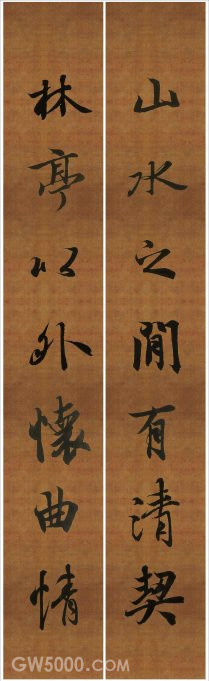 山水之間有清契
林亭以外懷曲情
GW5000.com